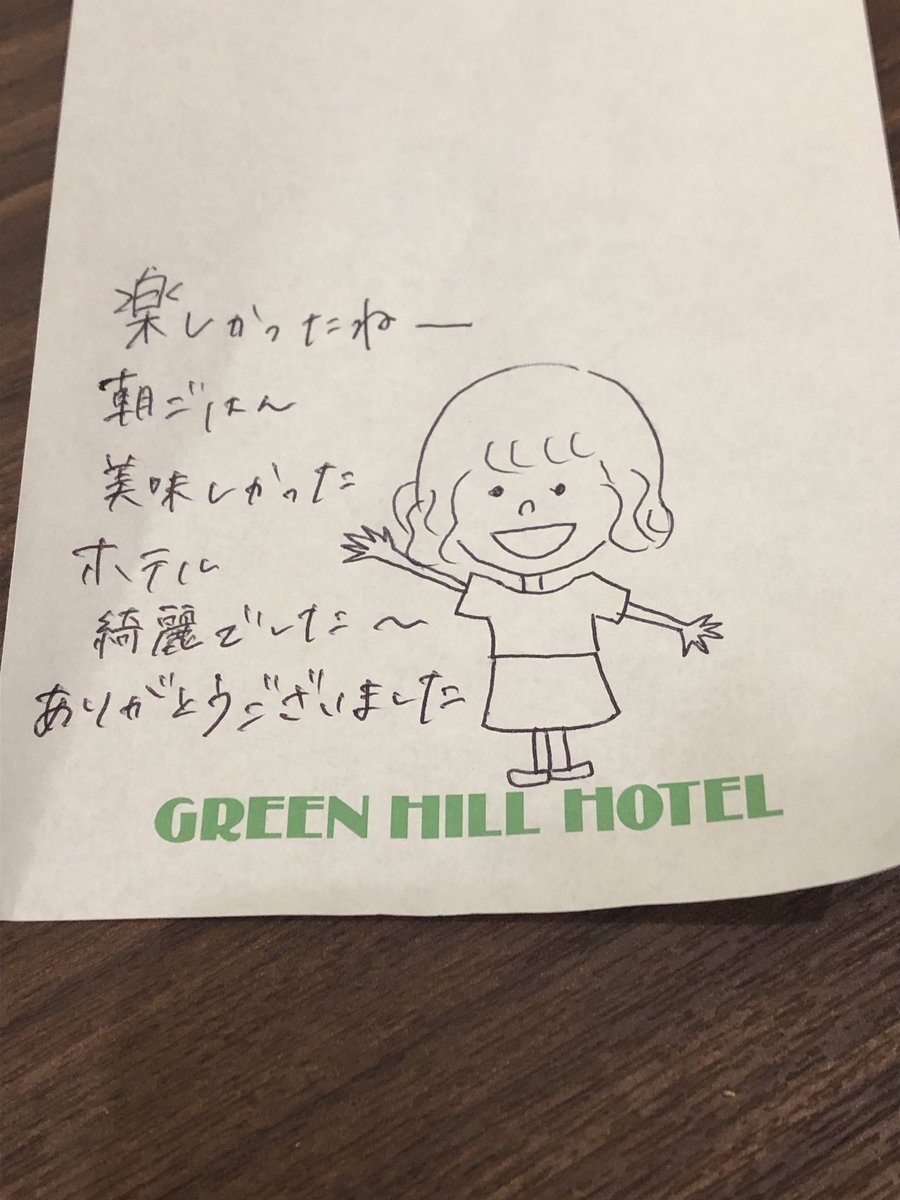 楽しかったねー
朝ごはん
美味しかった
ホテル
綺麗でした〜
ありがとうございました
GREEN HILL HOTEL